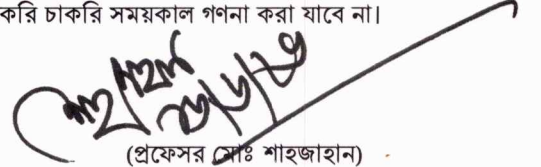 করি চাকরি সময়কাল গণনা করা যাবে না।
(প্রফেসর মোঃ শাহজাহান)